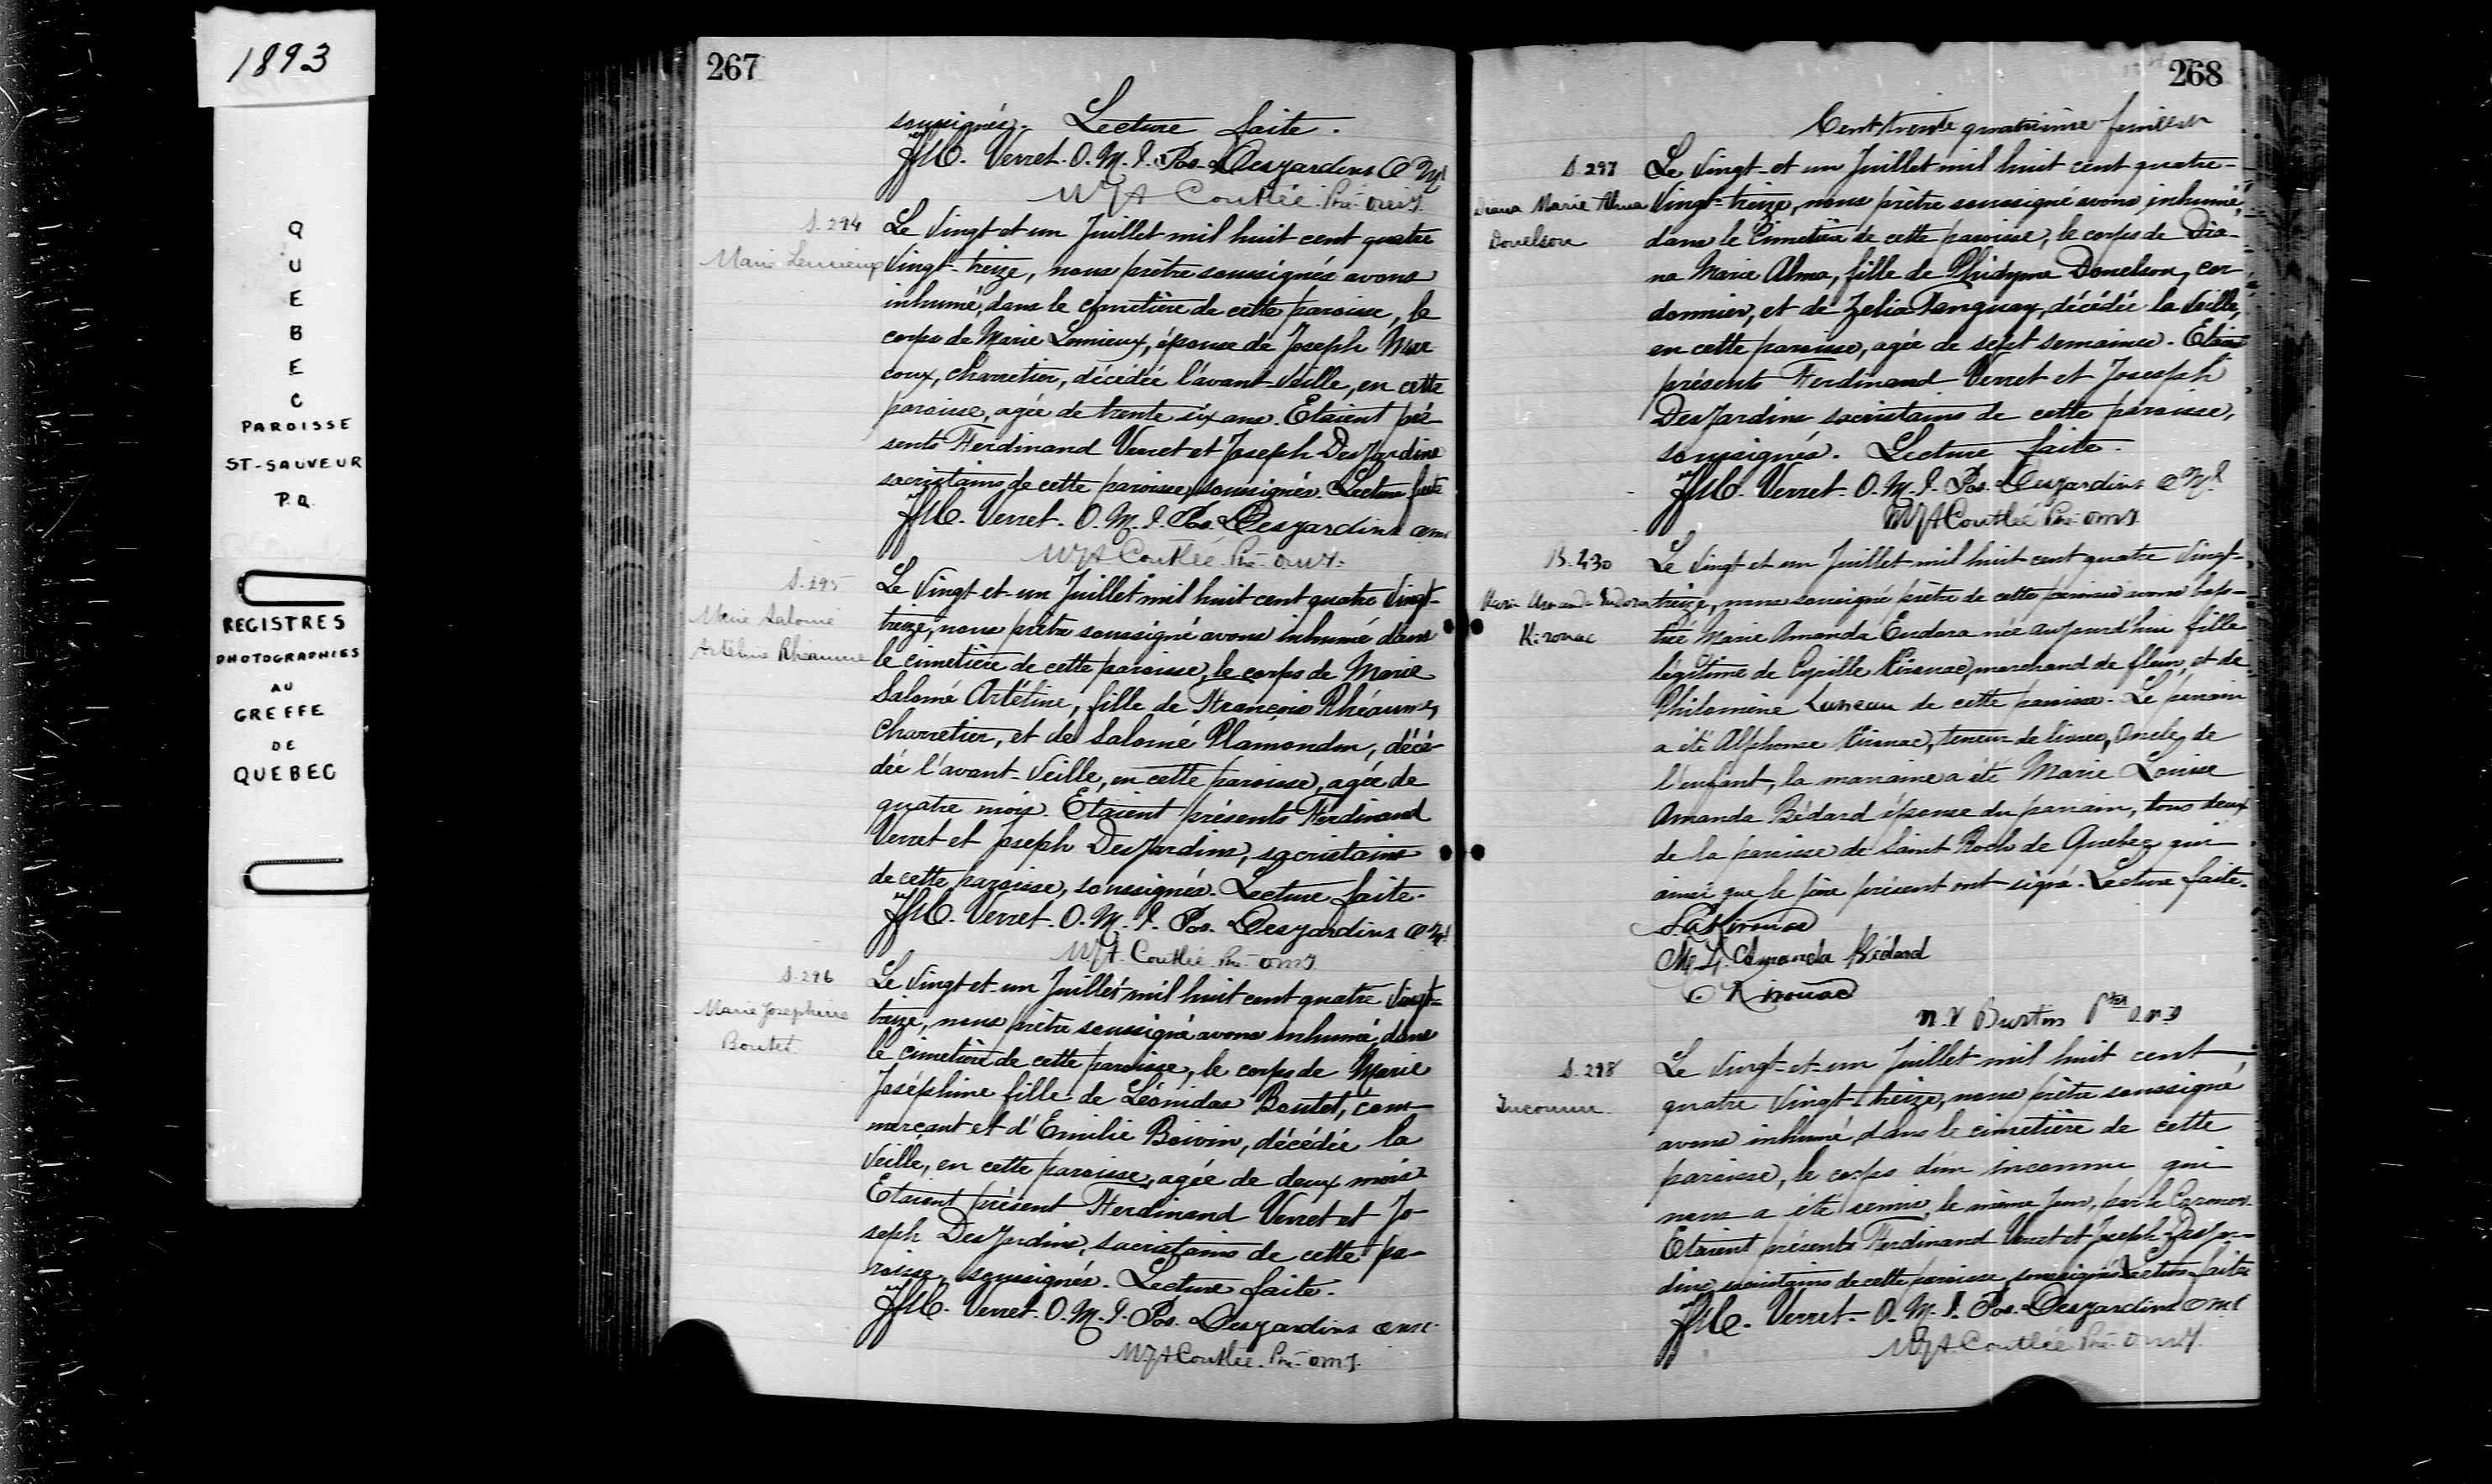 1893
Q
U
E
B
E
C
PAROISSE
ST-SAUVEUR
P.Q.
REGISTRES
PHOTOGRAPHIES
AU
GREFFE
DE
QUEBEC
267
soussignés. Lecture faite.
Verret. O. M. I. Pos. Desjardins
Coutlée Ptre O.M.I.
S. 294
Marie Lemieux
Le Vingt et un Juillet mil huit cent quatre
Vingt-treize, nous prêtre soussignés avons
inhumé, dans le cimetière de cette paroisse, le
corps de Marie Lemieux, épouse de Joseph Mar
coux, Charretier, décédée l'avant-veille, en cette
paroisse, agée de trente six ans. Etaient pré-
sents Ferdinand Verret et Joseph DesJardins
sacristains de cette paroisse, soussignés. Lecture faite
Verret. O. M. I. Pos. Desjardins
Coutlée Ptre O.M.I.
S. 295
Marie Salomé
Artéline Rhéaume
Le Vingt-et-un Juillet mil huit cent quatre Vingt-
treize, nous prêtre soussigné avons inhumé dans
le cimetière de cette paroisse, le corps de Marie
Salomé Artéline, fille de François Rhéaume,
Charretier, et de Salomé Plamondon, décé-
dée l'avant-Veille, en cette paroisse, agée de
quatre mois. Etaient présents Ferdinand
Verret et Joseph DesJardins, sacristains
de cette paroisse, soussignés. Lecture faite.
Verret. O. M. I. Pos. Desjardins
Coutlée Ptre O.M.I.
S. 296
Marie Josephine
Boutet
Le Vingt et-un Juillet mil huit cent quatre Vingt-
treize, nous prêtre soussigné avons inhumé, dans
le cimetière de cette paroisse, le corps de Marie
Joséphine fille de Léonidas Boutet, com-
merçant et d'Emilie Boivin, décédée la
Veille, en cette paroisse, agée de deux mois
Etaient présent Ferdinand Verret et Jo-
seph DesJardins, sacristains de cette pa-
roisse, soussignés. Lecture faite.
Verret. O. M. I. Pos. Desjardins
Coutlée Ptre O.M.I.
268
Cent trente quatrième feuillet
S. 297
Diana Marie Alma
Donelson
Le Vingt-et un Juillet mil huit cent quatre-
Vingt-treize, nous prêtre soussigné avons inhumé,
dans le Cimetière de cette paroisse, le corps de Dia-
na Marie Alma, fille de Phidyme Donelson, cor
donnier, et de Zelia Tanguay, décédée la Veille,
en cette paroisse, agée de sept semaines. Etaient
présents Ferdinand Verret et Joseph
DesJardins sacristains de cette paroisse,
soussignés. Lecture faite.
Verret. O. M. I. Pos. Desjardins
Coutlée Ptre O.M.I.
B. 430
Marie Amanda Eudora
Kirouac
Le Vingt et un Juillet mil huit cent quatre Vingt-
treize, nous soussigné prêtre de cette paroisse avons bap-
tisé Marie Amanda Eudora née aujourd'hui fille
légitime de Cyrille Kirouac, marchand de fleur, et de
Philomène Luneau de cette paroisse. Le parrain
a été Alphonse Kirouac, teneur de livres, Oncle, de
l'enfant, la marraine a été Marie Louise
Amanda Bédard épouse du parrain, tous deux
de la paroisse de Saint Roch de Quebec qui
ainsi que le père présent ont signé. Lecture faite.
Kirouac
M. L. Amanda Bédard
C. Kirouac
Burtin Ptre O.M.I
S. 298
Inconnu
Le Vingt-et-un Juillet mil huit cent
quatre Vingt-treize, nous prêtre soussigné
avons inhumé, dans le cimetière de cette
paroisse, le corps d'un inconnu qui
nous a été remis, le même jour, par le Coroner.
Etaient présents Ferdinand Verret et Joseph DesJar-
dins, sacristains de cette paroisse, soussignés. Lecture faite
Verret. O. M. I. Pos. Desjardins
Coutlée Ptre O.M.I.